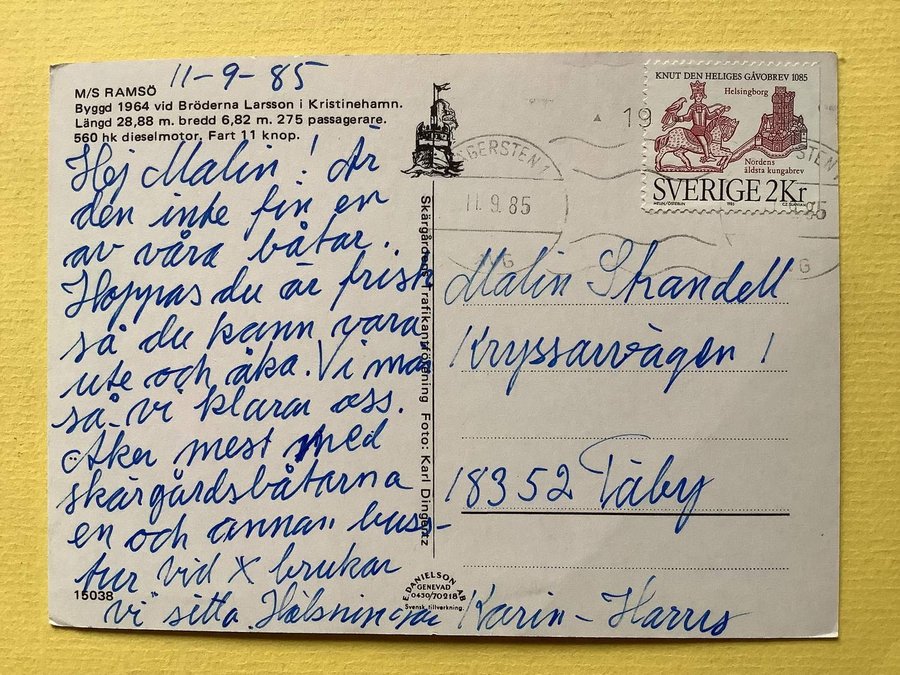 11-9-85
M/S RAMSÖ
Byggd 1964 vid Bröderna Larsson i Kristinehamn.
Längd 28,88 m. bredd 6,82 m. 275 passagerare.
560 hk dieselmotor. Fart 11 knop.
Hej Malin! Är
den inte fin en
av våra båtar.
Hoppas du är frisk
så du kann vara
ute och åka. Vi mår
så vi klarar oss.
Åker mest med
skärgårdsbåtarna
en och annan buss-
tur vid x brukar
vi sitta. Hälsningar Karin - Harry
15038
Skärgårdens Trafikantförening Foto: Karl
E. DANIELSON AB
GENEVAD
0430/70218
Svensk tillverkning.
KNUT DEN HELIGES GÅVOBREV 1085
Helsingborg
Nordens
äldsta kungabrev
SVERIGE 2Kr
1985
19
HÄGERSTEN 1
11.9.85
AVG
Malin Skandell
Kryssarvägen 1
18352 Täby